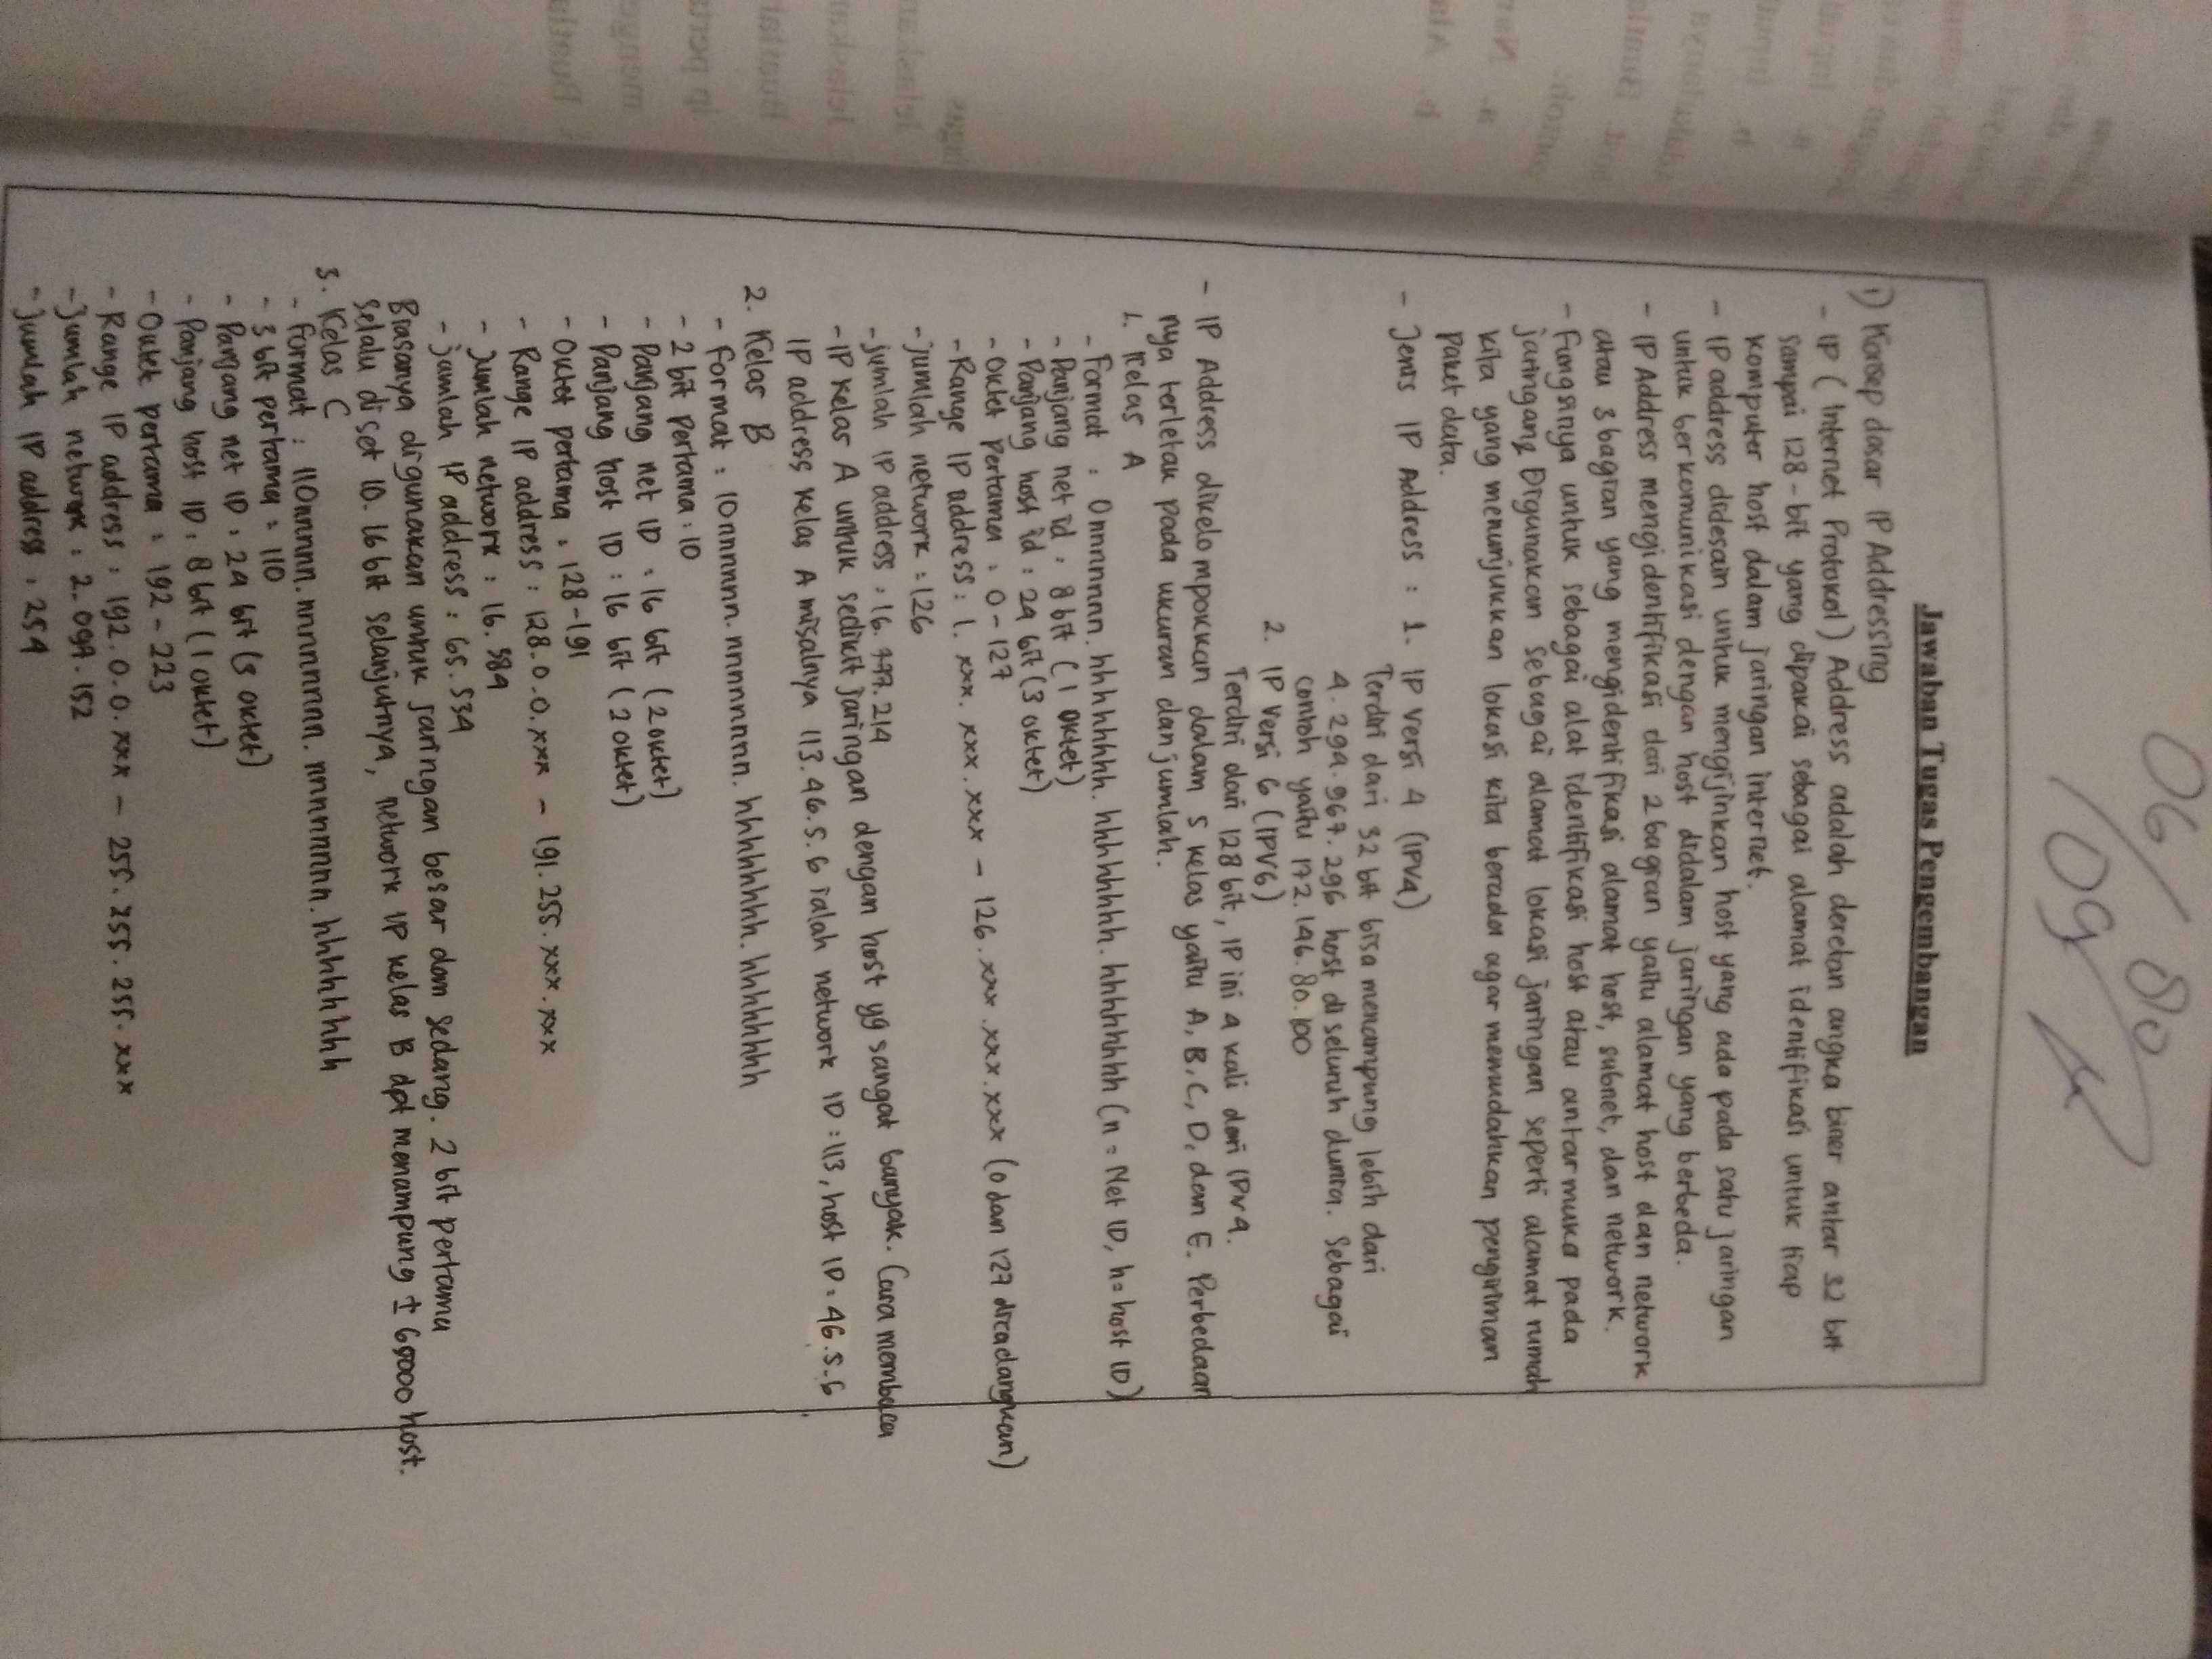 06/09 80
Jawaban Tugas Pengembangan
1) Konsep dasar IP Addressing
- IP ( Internet Protokol ) Address adalah deretan angka biner antar 32 bit
sampai 128-bit yang dipakai sebagai alamat identifikasi untuk tiap
komputer host dalam jaringan internet.
- IP address didesain untuk mengijinkan host yang ada pada satu jaringan
untuk berkomunikasi dengan host didalam jaringan yang berbeda.
- IP Address mengidentifikasi dari 2 bagian yaitu alamat host dan network
atau 3 bagian yang mengidentifikasi alamat host, subnet, dan network.
- Fungsinya untuk sebagai alat identifikasi host atau antarmuka pada
jaringan, Digunakan sebagai alamat lokasi jaringan seperti alamat rumah
kita yang menunjukkan lokasi kita berada agar memudahkan pengiriman
paket data.
- Jenis IP Address : 1. IP Versi 4 (IPV4)
Terdiri dari 32 bit bisa menampung lebih dari
4.294.967.296 host di seluruh dunia. Sebagai
contoh yaitu 172.146.80.100
2. IP Versi 6 (IPV6)
Terdiri dari 128 bit, IP ini 4 kali dari IPv4.
- IP Address dikelompokkan dalam 5 kelas yaitu A, B, C, D, dan E. Perbedaan
nya terletak pada ukuran dan jumlah.
1. Kelas A
- Format : 0nnnnnnn. hhhhhhhh. hhhhhhhh. hhhhhhhh (n = Net ID, h = host ID)
- Panjang net id : 8 bit (1 oktet)
- Panjang host id : 24 bit (3 oktet)
- Oktet pertama : 0-127
- Range IP address : 1. xxx. xxx. xxx - 126.xxx.xxx.xxx (0 dan 127 dicadangkan)
- jumlah network : 126
- jumlah IP address : 16.777.214
- IP kelas A untuk sedikit jaringan dengan host yg sangat banyak. Cara membaca
IP address kelas A misalnya 113.46.5.6 ialah network ID : 113, host ID : 46.5.6
2. Kelas B
- format : 10nnnnnn. nnnnnnnn. hhhhhhhh. hhhhhhhh
- 2 bit pertama : 10
- Panjang net ID : 16 bit (2 oktet)
- Panjang host ID : 16 bit (2 oktet)
- Oktet pertama : 128-191
- Range IP address : 128.0.0.xxx - 191.255.xxx.xxx
- Jumlah network : 16.384
- jamlah IP address : 65.534
Biasanya digunakan untuk jaringan besar dan sedang. 2 bit pertama
selalu di set 10. 16 bit selanjutnya, network IP kelas B dpt menampung ± 65000 host.
3. Kelas C
- format : 110nnnnn. nnnnnnnn. nnnnnnnn. hhhhhhhh
- 3 bit pertama : 110
- Panjang net ID : 24 bit (3 oktet)
- Panjang host ID : 8 bit (1 oktet)
- Oktet pertama : 192 - 223
- Range IP address : 192.0.0.xxx - 255.255.255.xxx
- Jumlah network : 2.097.152
- Jumlah IP address : 254